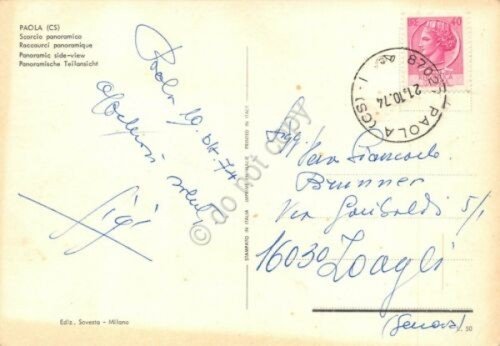 PAOLA (CS)
Scorcio panoramico
Raccourci panoramique
Panoramic side-view
Panoramische Teilansicht
Paola 19. Ott. 74
affettuosi saluti
Gigi
Ediz. Sovesta - Milano
STAMPATO IN ITALIA
IMPRIMÉ EN ITALIE
PRINTED IN ITALY
do not copy
40
87027 PAOLA (CS)
21.10.74
Sigg. Vera Giancarlo
Brunner
Via Garibaldi 5/1
16030 Zoagli
(Genova)
L. 50